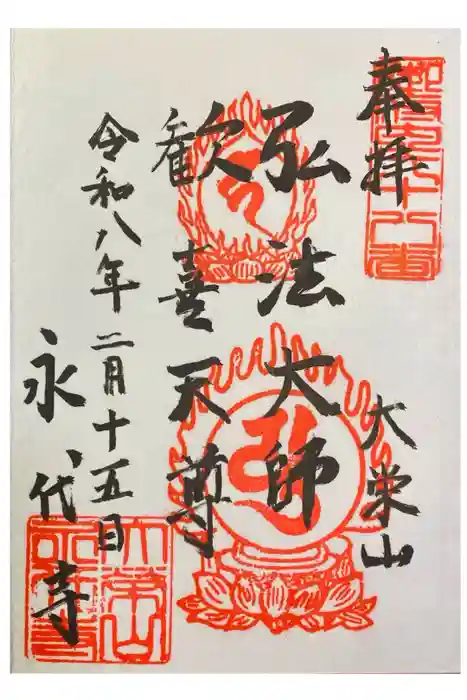 奉拝
大栄山
弘法大師
歓喜天尊
令和八年二月十五日
永代寺